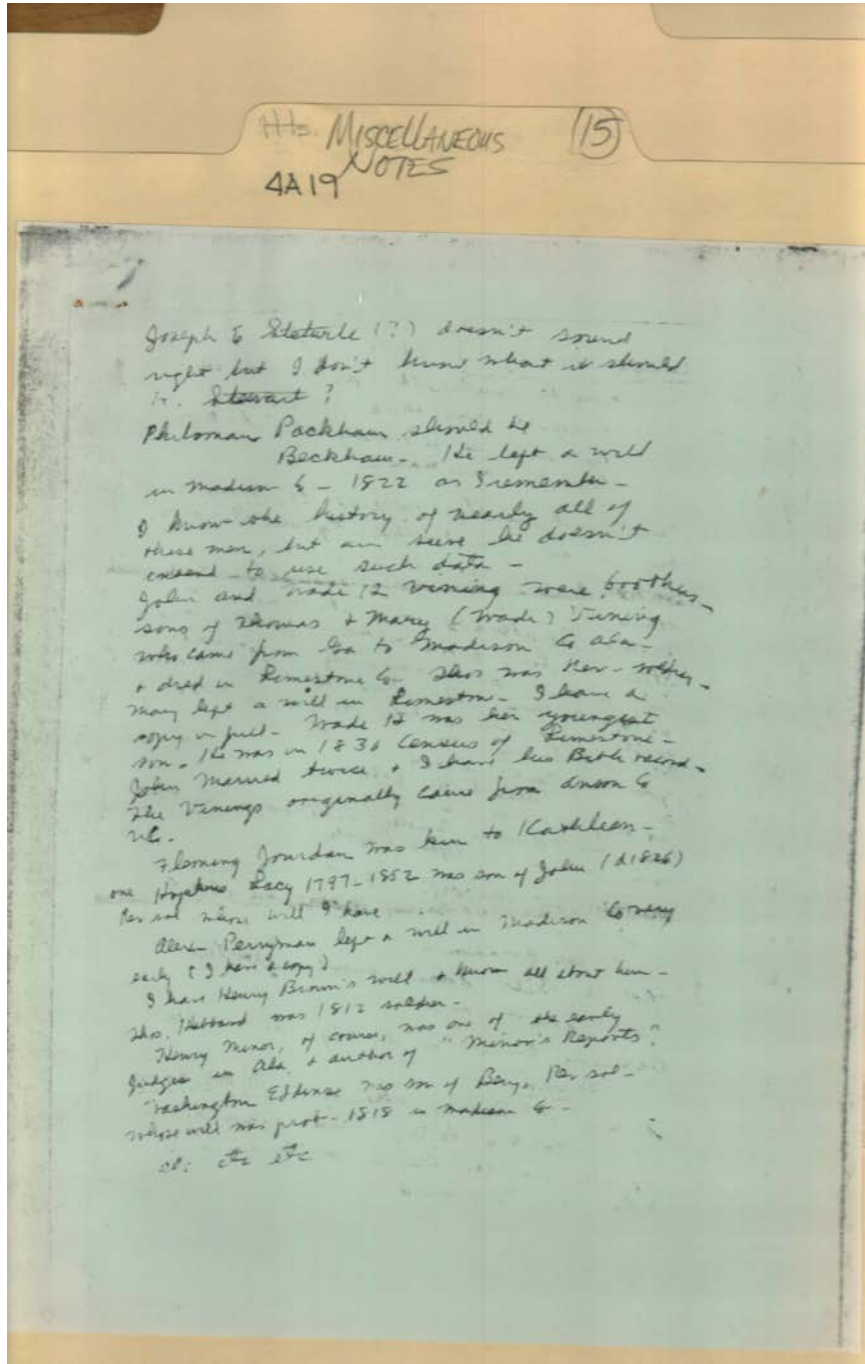 Hts. MISCELLANEOUS (15)
NOTES
4A19
Joseph E (?) doesn't sound
right but I don't know what it should
be. Stewart?
Philoman Packham should be
Beckham - He left a will
in Madison Co - 1822 as I remember -
I know the history of nearly all of
these men, but am sure he doesn't
intend to use such data -
John and Wade H Vining were brothers -
sons of Thomas & Mary (Wade) Vining
who came from Ga to Madison Co Ala -
& died in Limestone Co. Thos was Rev - soldier -
Mary left a will in Limestone - I have a
copy in full - Wade H was her youngest
son. He was in 1830 Census of Limestone -
John married twice & I have his Bible record -
The Vinings originally came from Anson Co
NC.
Fleming Jourdan was kin to Kathleen -
one Hopkins Lacy 1797-1852 was son of John (d 1826)
Rev sol whose will I have
Alex - Perryman left a will in Madison Co very
early (I have a copy)
I have Henry Brown's will & know all about him -
Thos. Hubbard was 1812 soldier -
Henry Minor, of course, was one of the early
Judges in Ala. & author of "Minor's Reports".
Washington Eddins was son of Benj. Rev sol -
whose will was prob - 1818 in Madison Co -
etc etc